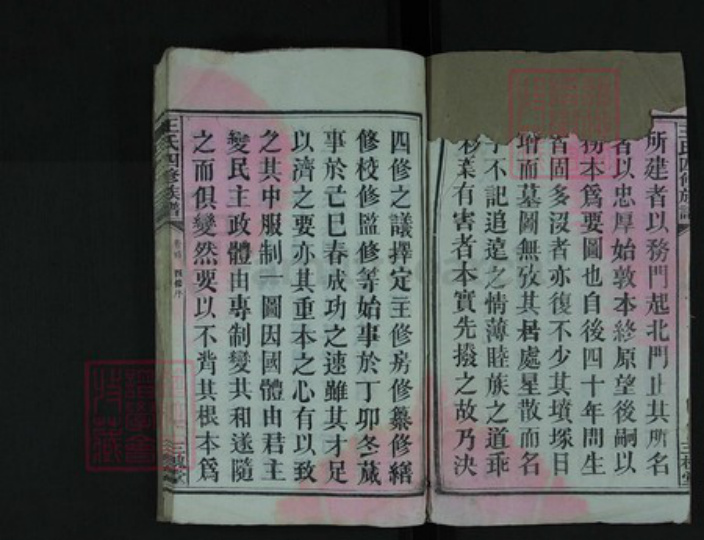 所建者以務門起北門止其所名
者以忠厚始敦本終原望後嗣以
務本爲要圖也自後四十年間生
者固多沒者亦復不少其墳塚日
增而墓圖無攷其居處星散而名
字不記追遠之情薄睦族之道乖
葉有害者本實先撥之故乃決
四修之議擇定主修房修纂修繕
修校修監修等始事於丁卯冬蕆
事於己巳春成功之速雖其才足
以濟之要亦其重本之心有以致
之其中服制一圖因國體由君主
變民主政體由專制變共和遂隨
之而俱變然要以不背其根本爲
王氏四修族譜
四修序
三槐堂